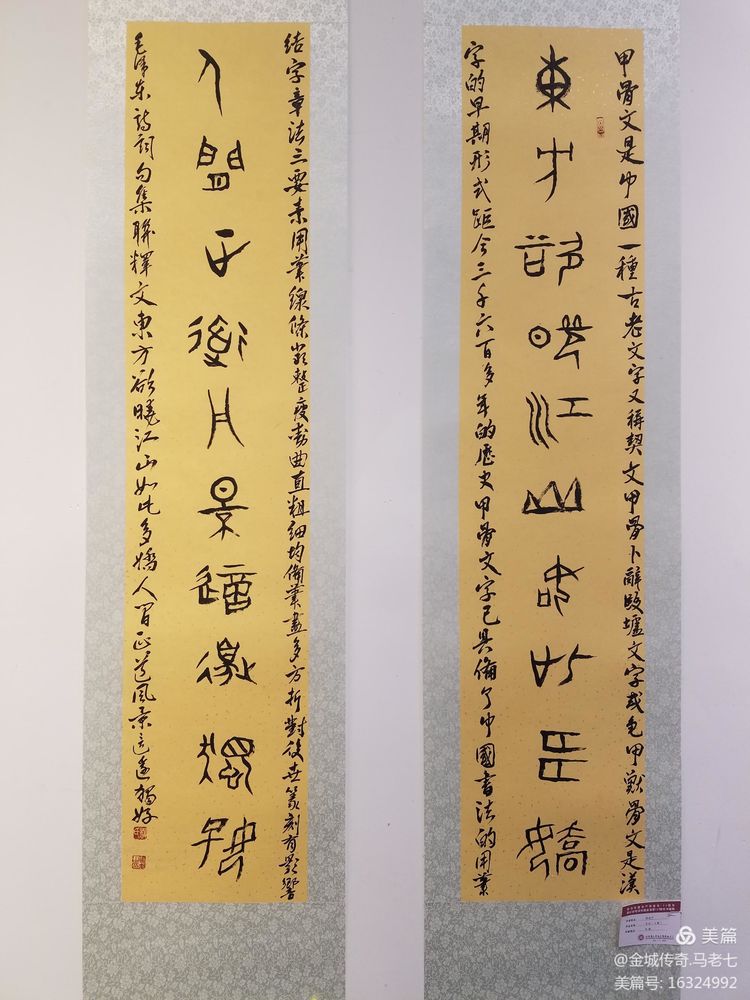 甲骨文是中國一種古老文字又稱契文甲骨卜辭殷墟文字或龟甲獸骨文是漢
東方欲曉江山如此多嬌
字的早期形式距今三千六百多年的歷史甲骨文字已具備了中國書法的用筆
结字章法三要素用筆線條嚴整瘦劲曲直粗細均備筆畫多方折對後世篆刻有影響
人間正道風景這邊獨好
毛澤东詩詞句集聯釋文東方欲曉江山如此多嬌人间正道風景這邊獨好
美篇
@金城传奇.马老七
美篇号: 16324992